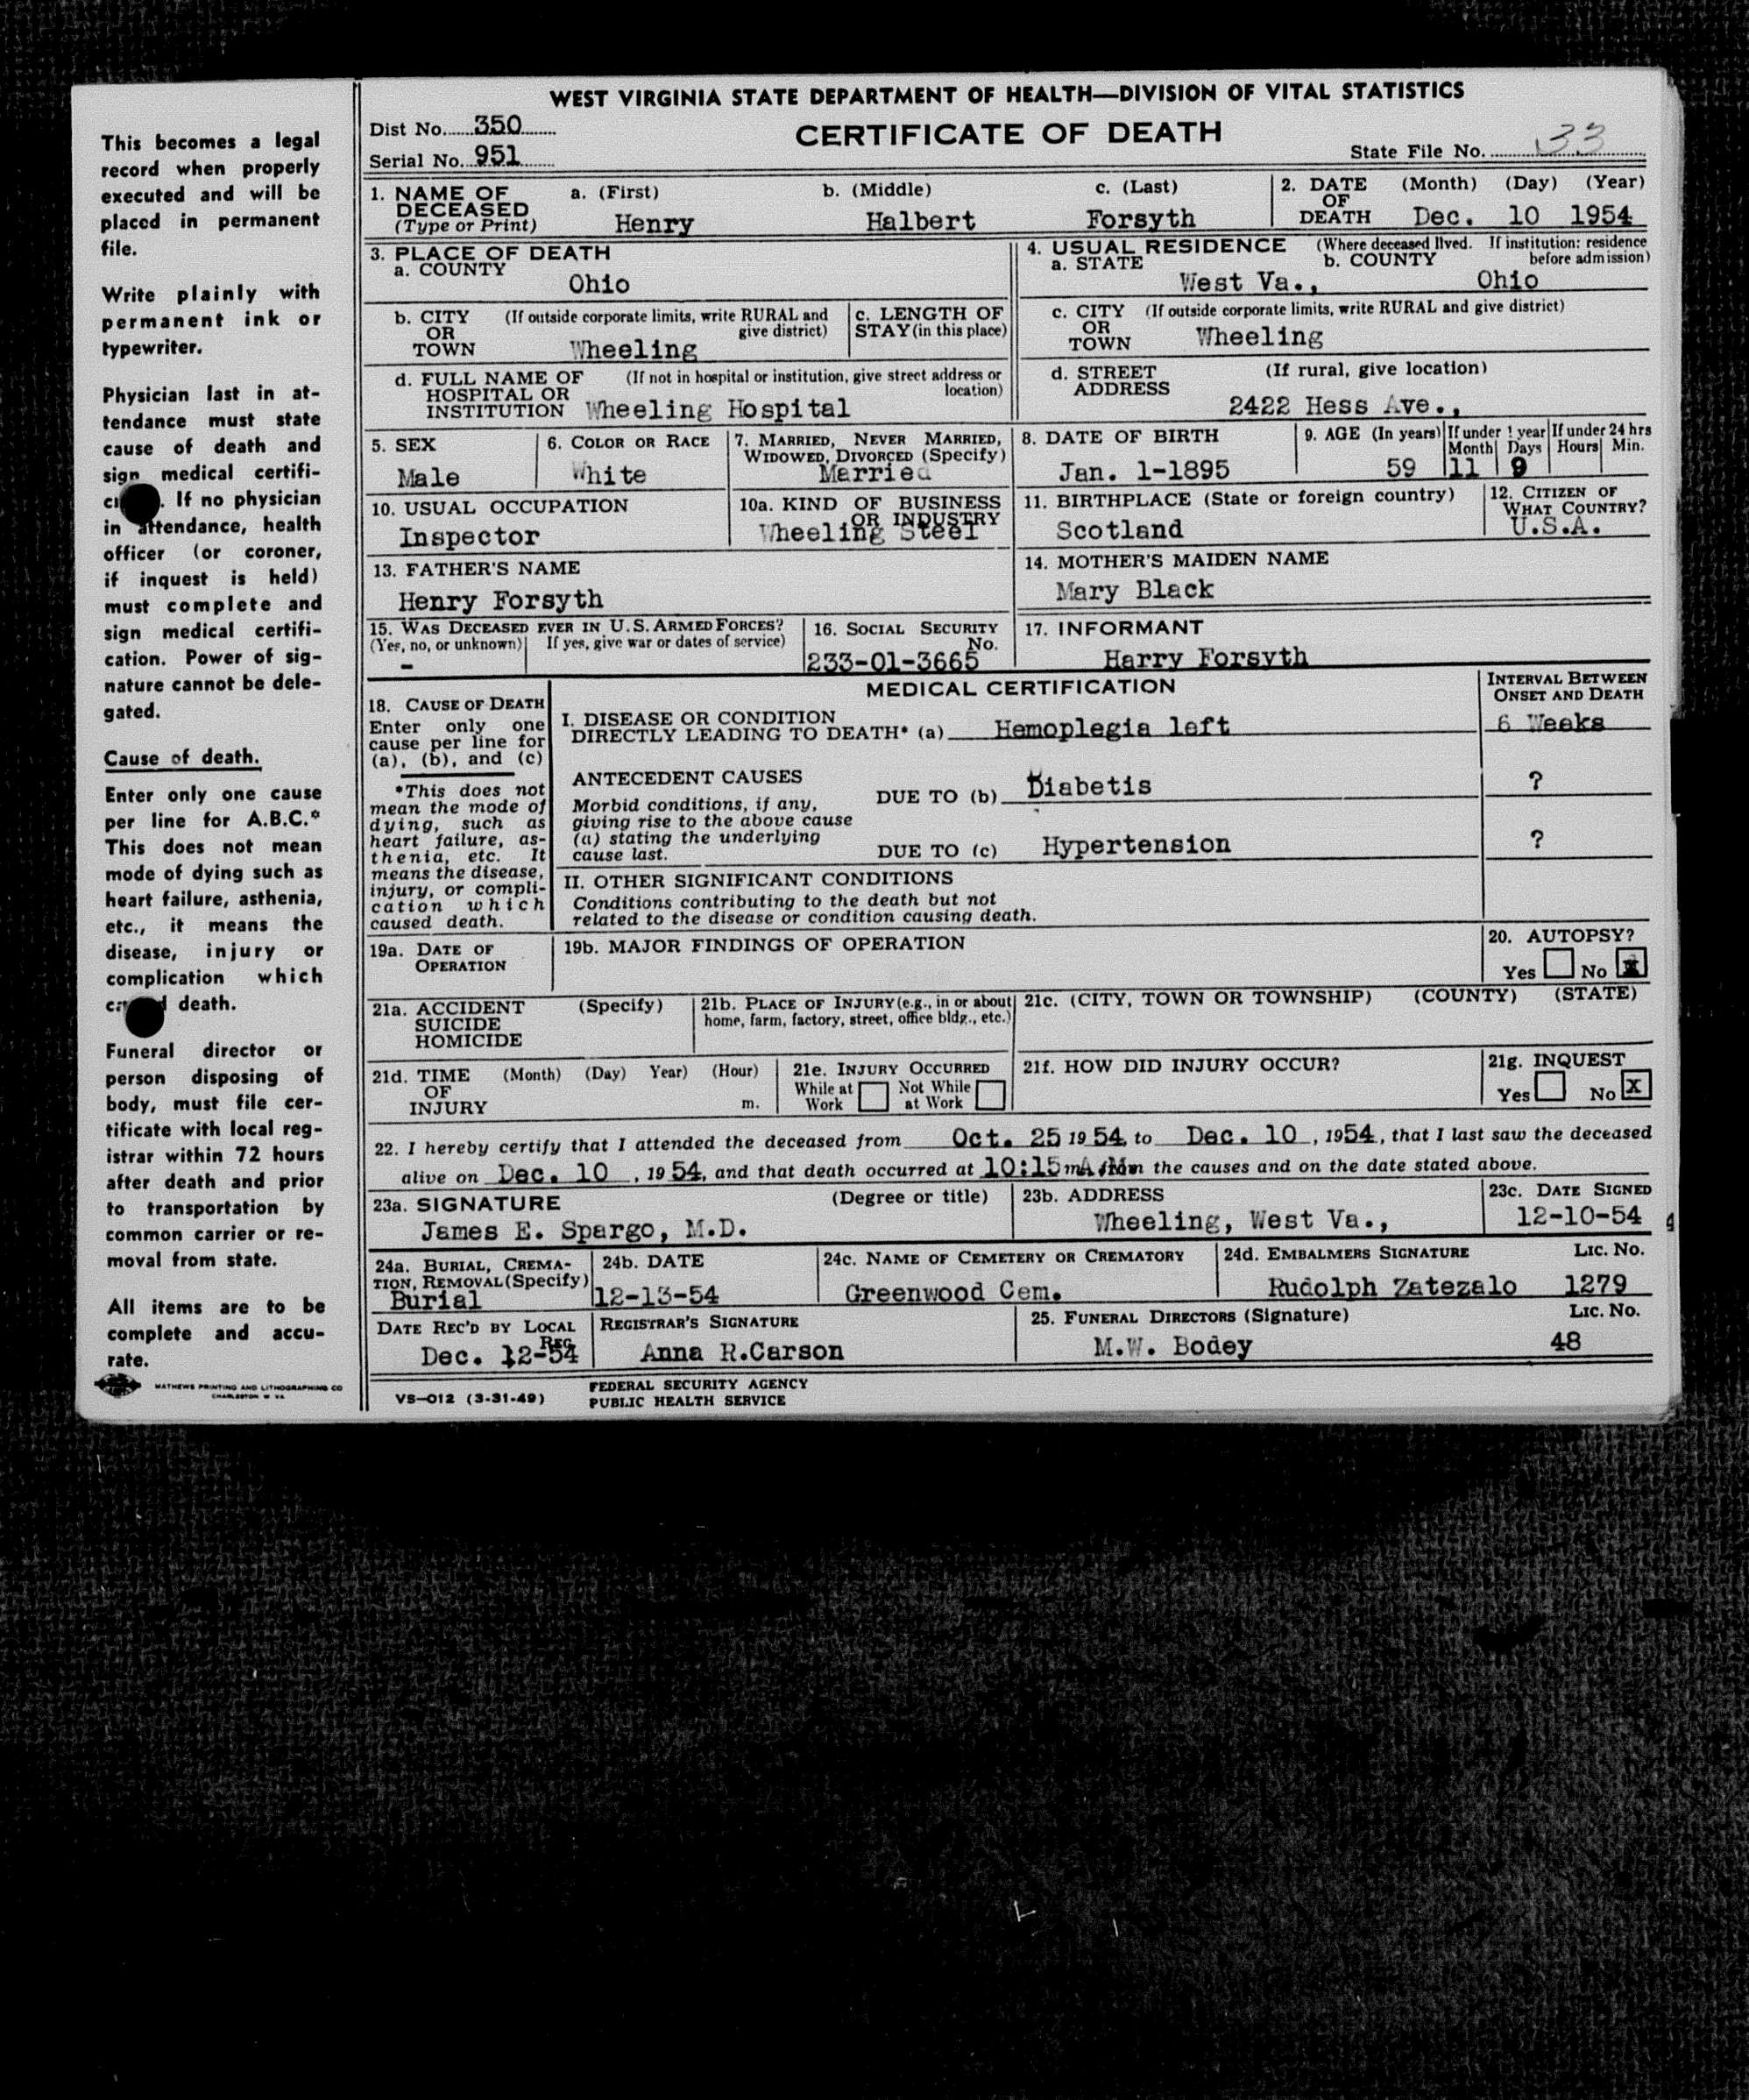 This becomes a legal
record when properly
executed and will be
placed in permanent
file.
Write plainly with
permanent ink or
typewriter.
Physician last in at-
tendance must state
cause of death and
sign medical certifi-
If no physician
in attendance, health
officer (or coroner,
if inquest is held)
must complete and
sign medical certifi-
cation. Power of sig-
nature cannot be dele-
gated.
Cause of death.
Enter only one cause
per line for A.B.C.*
This does not mean
mode of dying such as
heart failure, asthenia,
etc., it means the
disease, injury or
complication which
death.
Funeral director or
person disposing of
body, must file cer-
tificate with local reg-
istrar within 72 hours
after death and prior
to transportation by
common carrier or re-
moval from state.
All items are to be
complete and accu-
rate.
MATHEWS PRINTING AND LITHOGRAPHING CO
CHARLESTON W VA
WEST VIRGINIA STATE DEPARTMENT OF HEALTH—DIVISION OF VITAL STATISTICS
Dist No. 350
CERTIFICATE OF DEATH
Serial No. 951
State File No. 33
1. NAME OF DECEASED (Type or Print) a. (First) b. (Middle) c. (Last)
Henry Halbert Forsyth
2. DATE OF DEATH (Month) (Day) (Year)
Dec. 10 1954
3. PLACE OF DEATH
a. COUNTY
Ohio
4. USUAL RESIDENCE (Where deceased lived. If institution: residence before admission)
a. STATE b. COUNTY
West Va., Ohio
b. CITY OR TOWN (If outside corporate limits, write RURAL and give district)
Wheeling
c. LENGTH OF STAY (in this place)
c. CITY OR TOWN (If outside corporate limits, write RURAL and give district)
Wheeling
d. FULL NAME OF HOSPITAL OR INSTITUTION (If not in hospital or institution, give street address or location)
Wheeling Hospital
d. STREET ADDRESS (If rural, give location)
2422 Hess Ave.,
5. SEX
Male
6. COLOR OR RACE
White
7. MARRIED, NEVER MARRIED, WIDOWED, DIVORCED (Specify)
Married
8. DATE OF BIRTH
Jan. 1-1895
9. AGE (In years) If under 1 year If under 24 hrs
Month Days Hours Min.
59 11 9
10. USUAL OCCUPATION
Inspector
10a. KIND OF BUSINESS OR INDUSTRY
Wheeling Steel
11. BIRTHPLACE (State or foreign country)
Scotland
12. CITIZEN OF WHAT COUNTRY?
U.S.A.
13. FATHER'S NAME
Henry Forsyth
14. MOTHER'S MAIDEN NAME
Mary Black
15. WAS DECEASED EVER IN U.S. ARMED FORCES?
(Yes, no, or unknown) If yes, give war or dates of service)
-
16. SOCIAL SECURITY No.
233-01-3665
17. INFORMANT
Harry Forsyth
18. CAUSE OF DEATH
Enter only one
cause per line for
(a), (b), and (c)
*This does not
mean the mode of
dying, such as
heart failure, as-
thenia, etc. It
means the disease,
injury, or compli-
cation which
caused death.
MEDICAL CERTIFICATION
INTERVAL BETWEEN ONSET AND DEATH
I. DISEASE OR CONDITION
DIRECTLY LEADING TO DEATH* (a) Hemoplegia left 6 Weeks
ANTECEDENT CAUSES
Morbid conditions, if any,
giving rise to the above cause
(a) stating the underlying
cause last.
DUE TO (b) Diabetis ?
DUE TO (c) Hypertension ?
II. OTHER SIGNIFICANT CONDITIONS
Conditions contributing to the death but not
related to the disease or condition causing death.
19a. DATE OF OPERATION
19b. MAJOR FINDINGS OF OPERATION
20. AUTOPSY?
Yes No X
21a. ACCIDENT SUICIDE HOMICIDE (Specify)
21b. PLACE OF INJURY (e.g., in or about home, farm, factory, street, office bldg., etc.)
21c. (CITY, TOWN OR TOWNSHIP) (COUNTY) (STATE)
21d. TIME OF INJURY (Month) (Day) Year) (Hour) m.
21e. INJURY OCCURRED
While at Work Not While at Work
21f. HOW DID INJURY OCCUR?
21g. INQUEST
Yes No X
22. I hereby certify that I attended the deceased from Oct. 25 1954, to Dec. 10, 1954, that I last saw the deceased
alive on Dec. 10, 1954, and that death occurred at 10:15 m A.M. from the causes and on the date stated above.
23a. SIGNATURE (Degree or title)
James E. Spargo, M.D.
23b. ADDRESS
Wheeling, West Va.,
23c. DATE SIGNED
12-10-54
24a. BURIAL, CREMA-
TION, REMOVAL (Specify)
Burial
24b. DATE
12-13-54
24c. NAME OF CEMETERY OR CREMATORY
Greenwood Cem.
24d. EMBALMERS SIGNATURE Lic. No.
Rudolph Zatezalo 1279
DATE REC'D BY LOCAL REG.
Dec. 12-54
REGISTRAR'S SIGNATURE
Anna R.Carson
25. FUNERAL DIRECTORS (Signature) Lic. No.
M.W. Bodey 48
VS—012 (3-31-49)
FEDERAL SECURITY AGENCY
PUBLIC HEALTH SERVICE